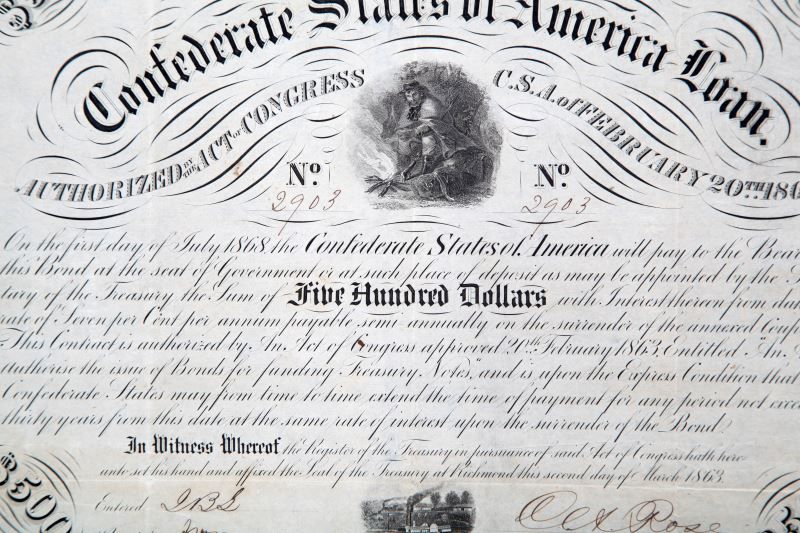 Confederate States of America Loan.
AUTHORIZED BY THE ACT OF CONGRESS C.S.A. of FEBRUARY 20TH 186
No. No.
2903 2903
On the first day of July 1868, the Confederate States of America will pay to the Bear
this Bond at the seat of Government or at such place of deposit as may be appointed by the
tary of the Treasury the Sum of Five Hundred Dollars with Interest thereon from
rate of Seven per Cent per annum payable semi annually on the surrender of the annexed Coup
This Contract is authorized by An Act of Congress approved 20th February 1863, Entitled "An
authorise the issue of Bonds for funding Treasury Notes," and is upon the Express Condition that
Confederate States may from time to time extend the time of payment for any period not exce
thirty years from this date at the same rate of interest upon the surrender of the Bond
In Witness Whereof the Register of the Treasury in pursuance of said Act of Congress hath here
unto set his hand and affixed the Seal of the Treasury at Richmond this second day of March 1863.
$500 Entered Rose